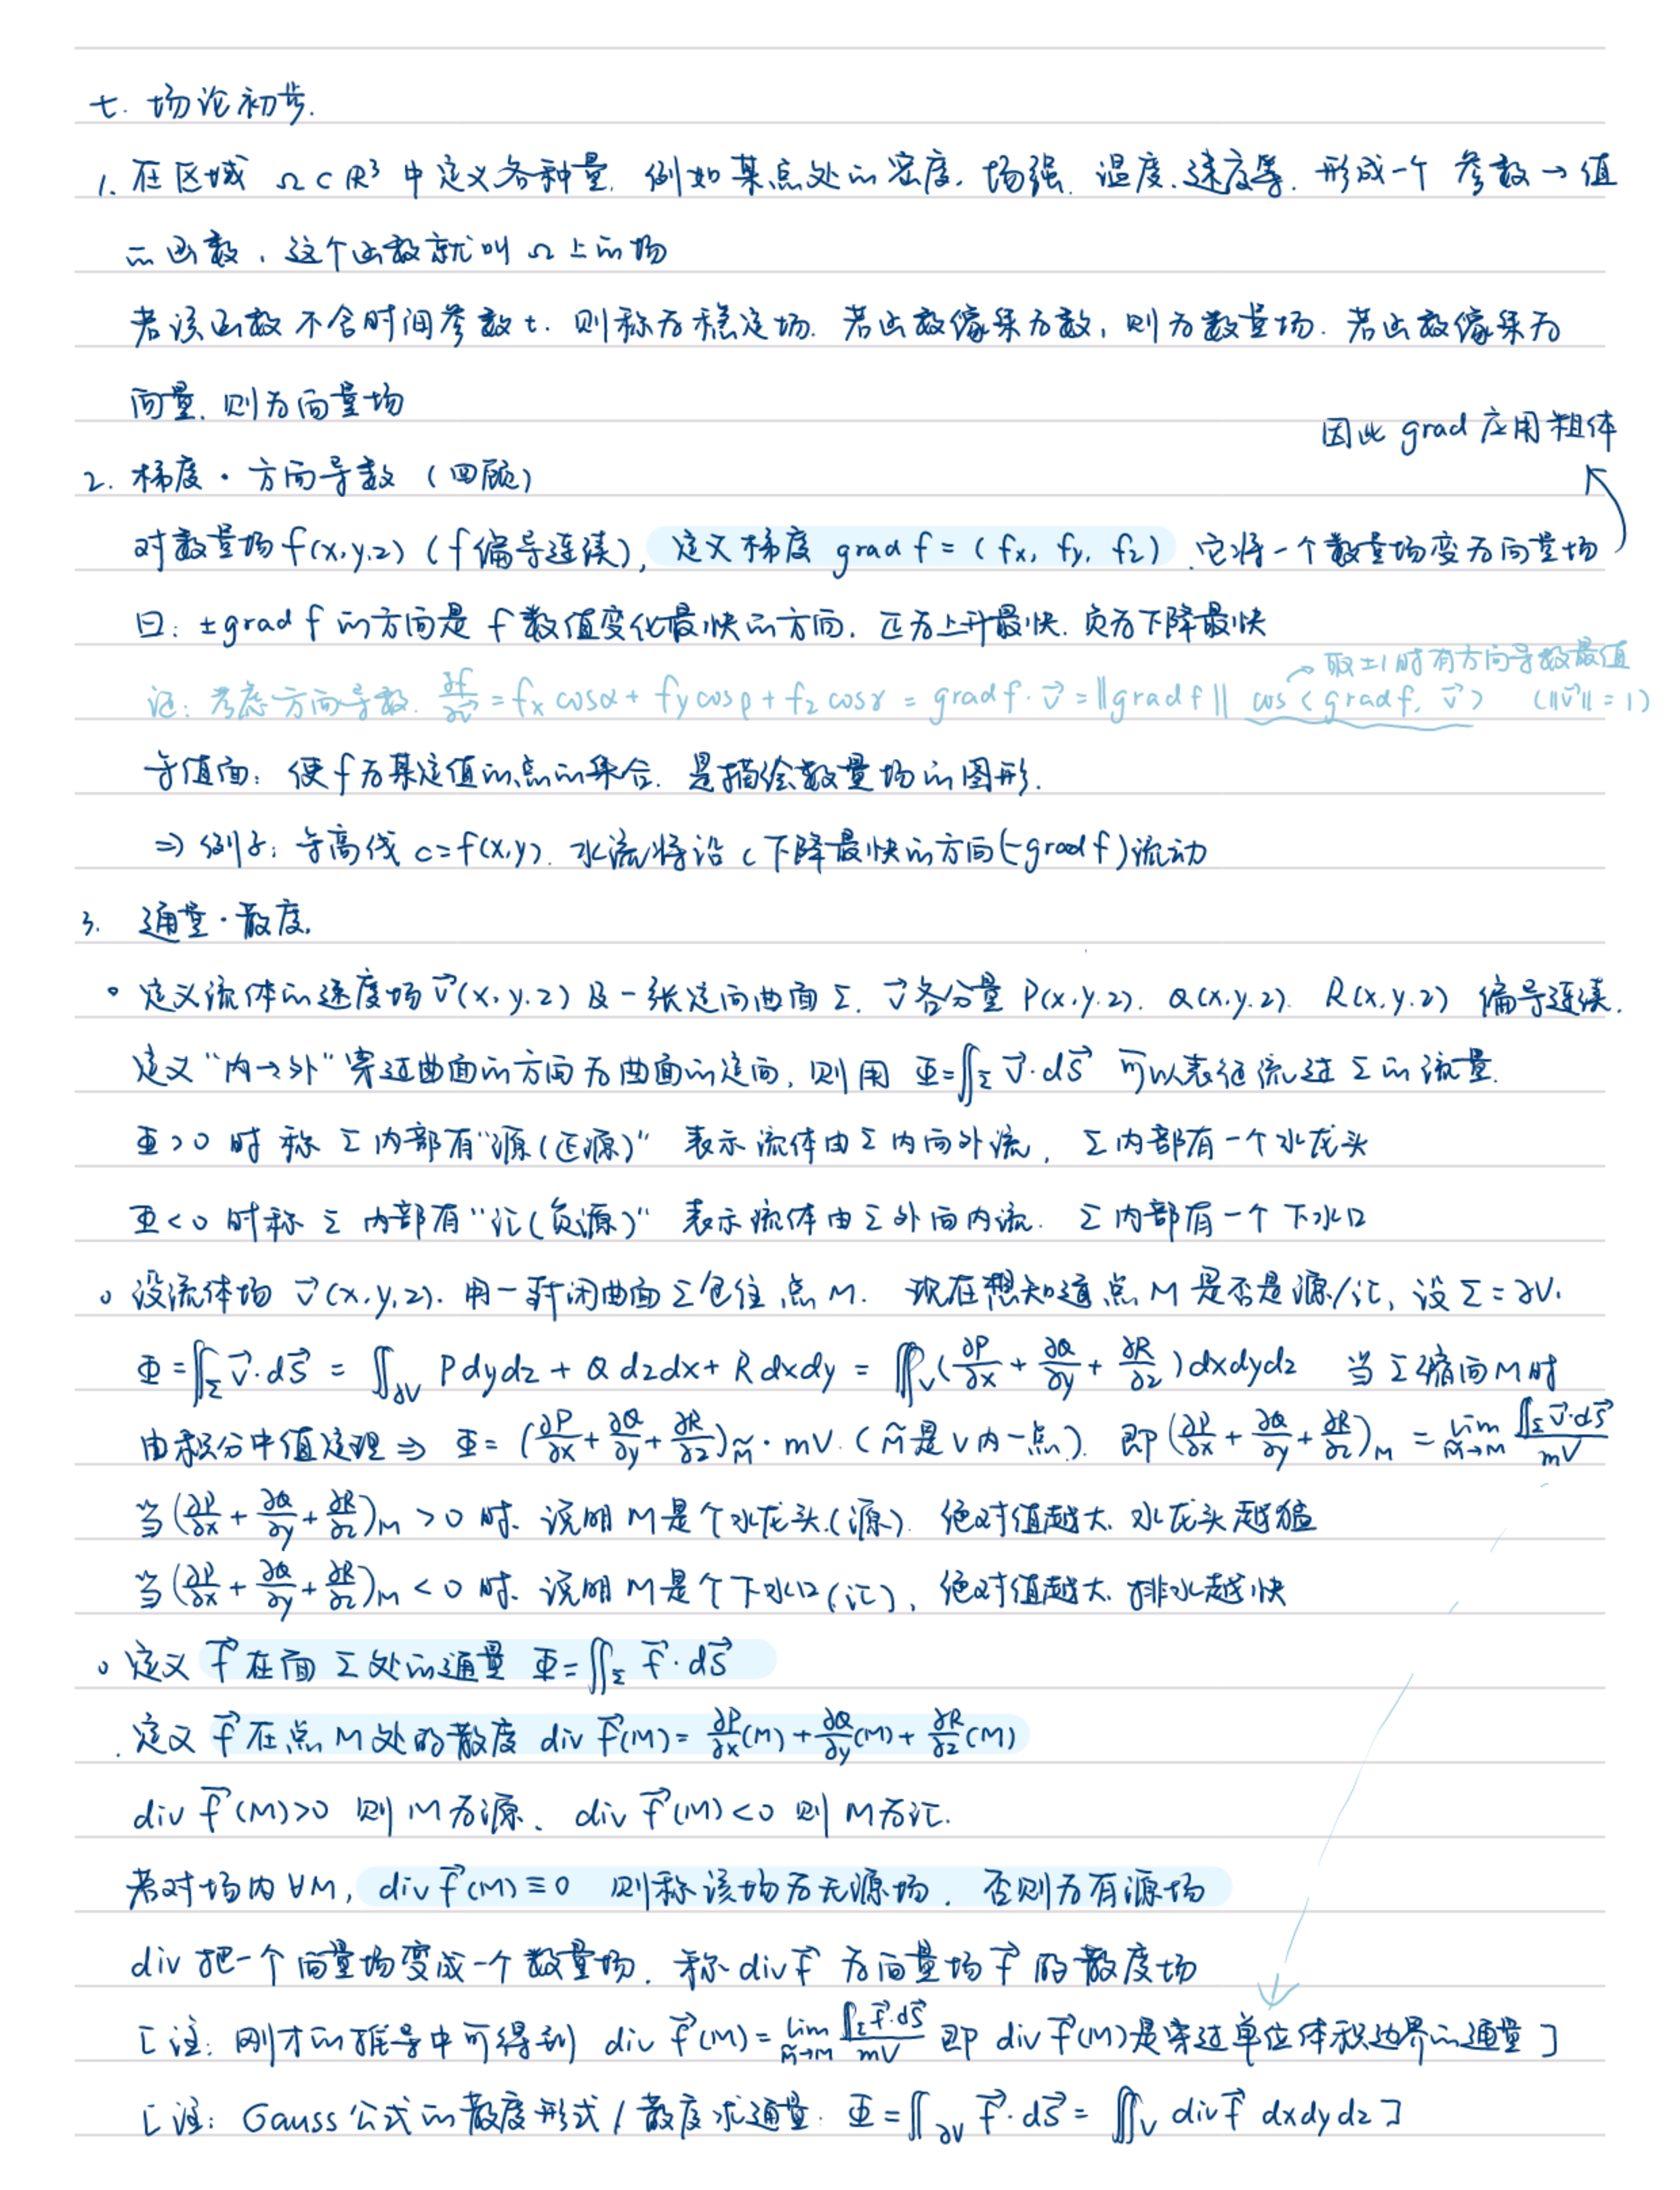 七. 场论初步.
1. 在区域 Ω⊂R³ 中定义各种量, 例如某点处的密度, 场强, 温度, 速度等, 形成一个 参数→值
的函数, 这个函数就叫 Ω 上的场
若该函数不含时间参数 t, 则称为稳定场. 若函数像集为数, 则为数量场. 若函数像集为
向量, 则为向量场
因此 grad 应用粗体
2. 梯度·方向导数 (回顾)
对数量场 f(x,y,z) (f偏导连续), 定义梯度 grad f = (fx, fy, fz), 它将一个数量场变为向量场
曰: ±grad f 的方向是 f 数值变化最快的方向, 正为上升最快, 负为下降最快
→取±1时有方向导数最值
证: 考虑方向导数. ∂f/∂v⃗ = fx cosα + fy cosβ + fz cosγ = grad f·v⃗ = ‖grad f‖ cos<grad f, v⃗> (‖v⃗‖=1)
等值面: 使 f 为某定值的点的集合. 是描绘数量场的图形.
⇒ 例子: 等高线 c=f(x,y). 水流将沿 c 下降最快的方向(-grad f)流动
3. 通量·散度.
∘ 定义流体的速度场 v⃗(x,y,z) 及一张定向曲面 Σ, v⃗各分量 P(x,y,z), Q(x,y,z), R(x,y,z) 偏导连续.
定义“内→外”穿过曲面的方向为曲面的定向, 则用 Φ=∬_Σ v⃗·dS⃗ 可以表征流过 Σ 的流量.
Φ>0 时 称 Σ 内部有“源(正源)” 表示流体由 Σ 内向外流, Σ 内部有一个水龙头
Φ<0 时称 Σ 内部有“汇(负源)” 表示流体由 Σ 外向内流. Σ 内部有一个 下水口
∘ 设流体场 v⃗(x,y,z). 用一封闭曲面 Σ 包住点 M. 现在想知道点 M 是否是源/汇, 设 Σ=∂V.
Φ=∬_Σ v⃗·dS⃗ = ∬_∂V Pdydz + Q dzdx + R dxdy = ∭_V (∂P/∂x + ∂Q/∂y + ∂R/∂z) dxdydz 当 Σ 缩向 M 时
由积分中值定理 ⇒ Φ = (∂P/∂x + ∂Q/∂y + ∂R/∂z)_M̃ · mV. (M̃ 是 V 内一点). 即 (∂P/∂x + ∂Q/∂y + ∂R/∂z)_M = lim_{M̃→M} ∬_Σ v⃗·dS⃗ / mV
当 (∂P/∂x + ∂Q/∂y + ∂R/∂z)_M > 0 时. 说明 M 是个水龙头(源). 绝对值越大, 水龙头越猛
当 (∂P/∂x + ∂Q/∂y + ∂R/∂z)_M < 0 时. 说明 M 是个下水口(汇), 绝对值越大, 排水越快
∘ 定义 f⃗ 在面 Σ 处的通量 Φ=∬_Σ f⃗·dS⃗
. 定义 f⃗ 在点 M 处的散度 div f⃗(M) = ∂P/∂x(M) + ∂Q/∂y(M) + ∂R/∂z(M)
div f⃗(M)>0 则 M 为源. div f⃗(M)<0 则 M 为汇.
若对场内 ∀M, div f⃗(M)≡0 则称该场为无源场, 否则为有源场
div 把一个向量场变成一个数量场. 称 div f⃗ 为向量场 f⃗ 的散度场
[注: 刚才的推导中可得到 div f⃗(M) = lim_{M̃→M} ∬_Σ f⃗·dS⃗ / mV 即 div f⃗(M)是穿过单位体积边界的通量]
[注: Gauss公式的散度形式/散度求通量: Φ=∬_∂V f⃗·dS⃗ = ∭_V div f⃗ dxdydz]